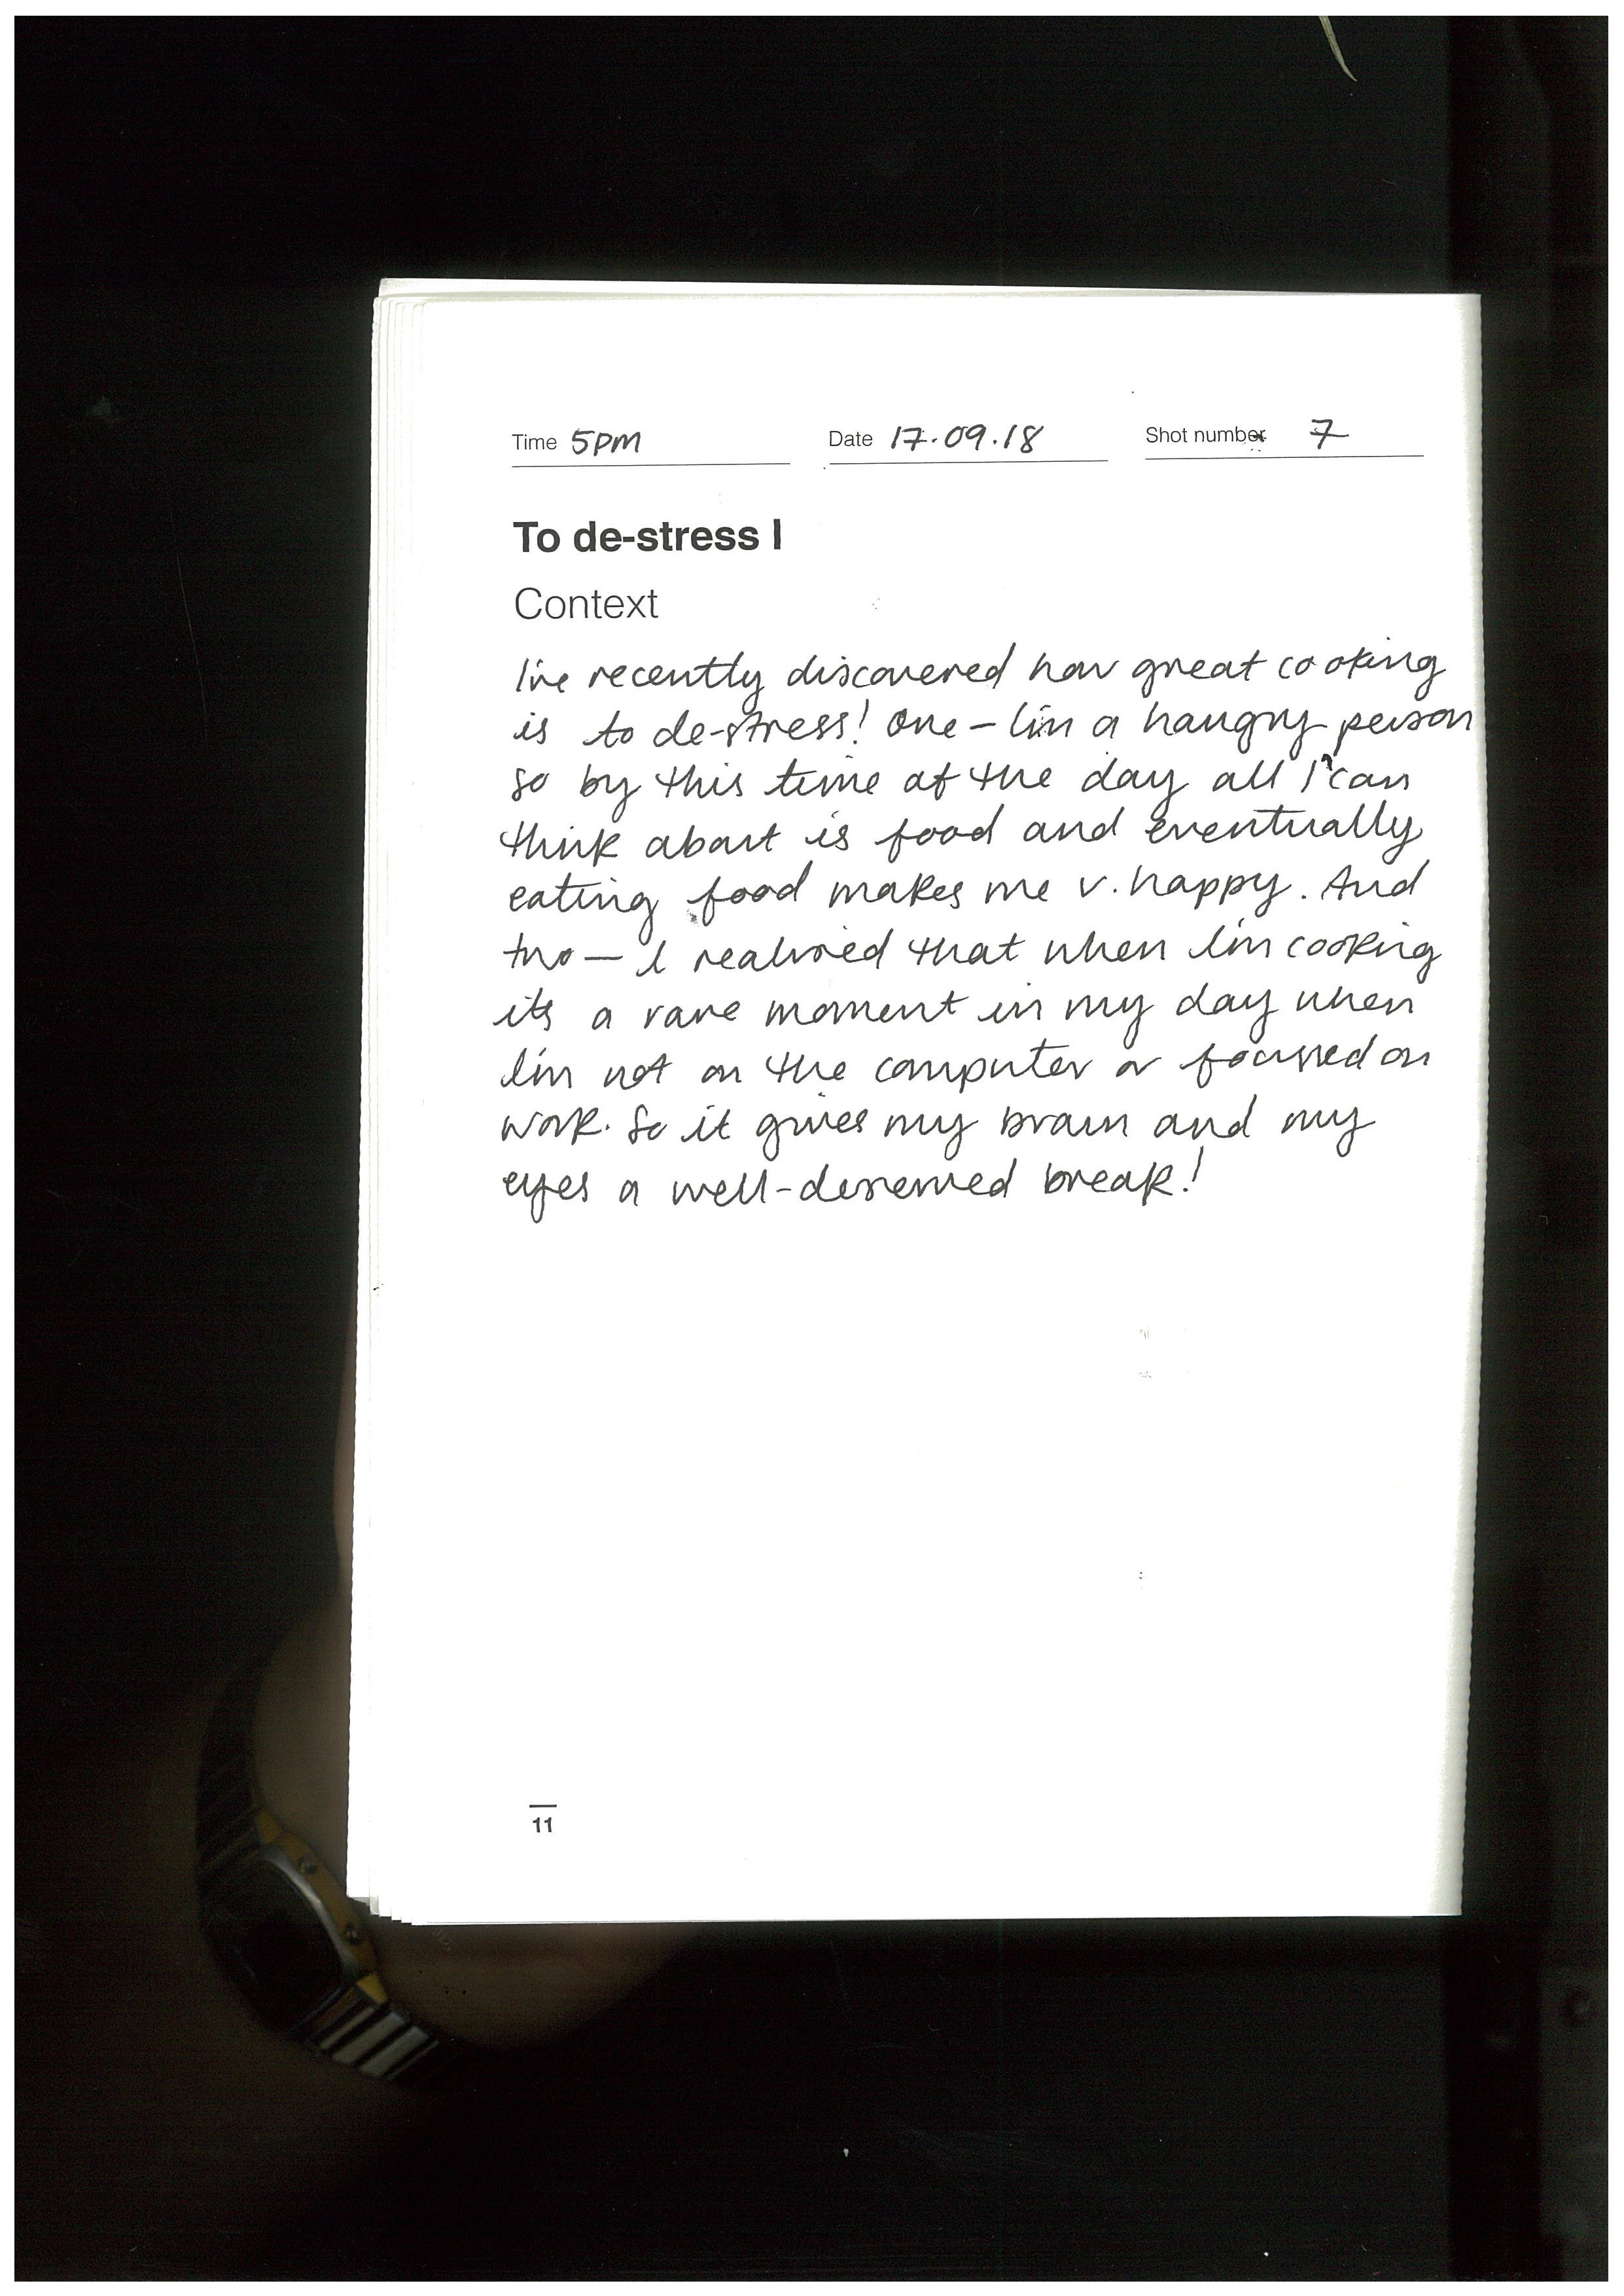 Time 5PM Date 17.09.18 Shot number 7
To de-stress I
Context
I've recently discovered how great cooking
is to de-stress! One – I'm a hangry person
so by this time of the day all I can
think about is food and eventually
eating food makes me v. happy. And
two — I realised that when I'm cooking
its a rare moment in my day when
I'm not on the computer or focussed on
work. So it gives my brain and my
eyes a well-deserved break!
11